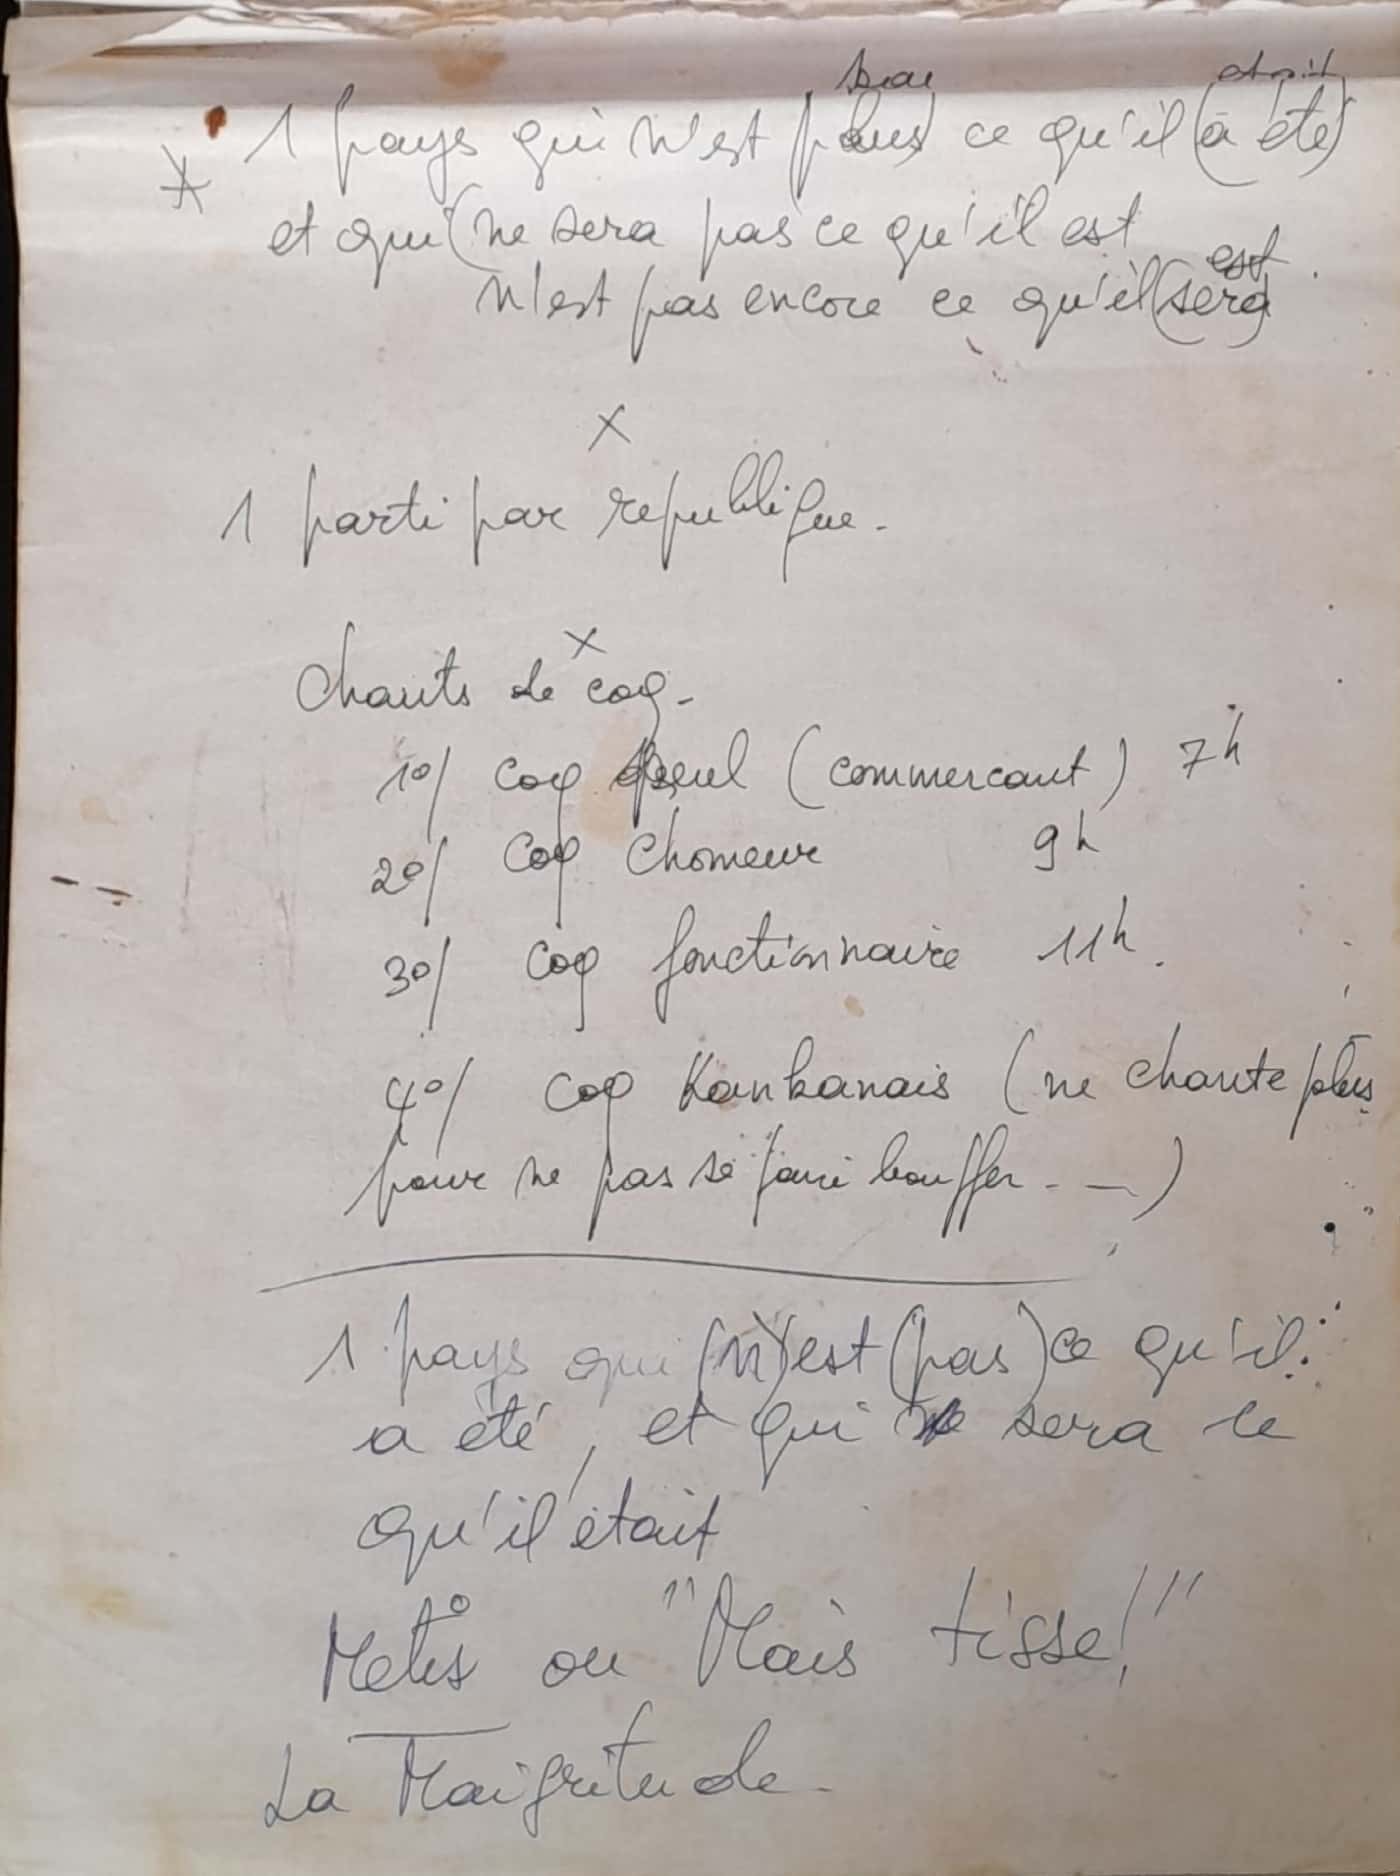 était
* 1 pays qui n'est (plus) ce qu'il (a été)
et qui (ne sera pas ce qu'il est
est
n'est pas encore ce qu'il (sera)
x
1 parti par republique.
x
Chants de coq -
1°/ coq (commercant) 7h
2°/ coq chomeur 9h
3°/ coq fonctionnaire 11h.
4°/ coq Kankanais (ne chante plus
pour ne pas se faire bouffer - - )
1 pays qui (n')est (pas) ce qu'il
a été, et qui sera ce
qu'il était
Metis ou "Maïs tisse!"
La Maigritude -